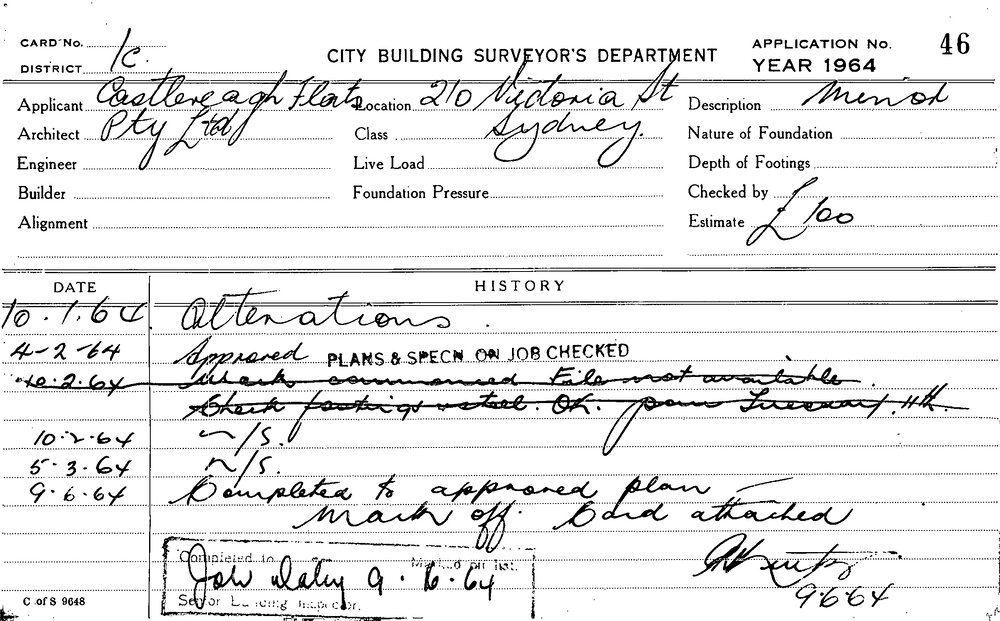 CARD No. 1c.
DISTRICT
CITY BUILDING SURVEYOR'S DEPARTMENT
APPLICATION No. 46
YEAR 1964
Applicant Castlereagh Flats Location 210 Victoria St Description Minor
Architect Pty Ltd Class Sydney. Nature of Foundation
Engineer Live Load Depth of Footings
Builder Foundation Pressure Checked by
Alignment Estimate £100
DATE HISTORY
10.1.64 Alterations.
4-2-64 Approved PLANS & SPECN ON JOB CHECKED
10.2.64 Work commenced File not available.
Check footings & steel. OK. pour Tuesday 11th.
10.2.64 n/s.
5.3.64 n/s.
9.6.64 Completed to approved plan –
Mark off. Card attached
Completed to Marked off list.
John 9.6.64
Senior Building Inspector.
9.6.64
C of S 9648